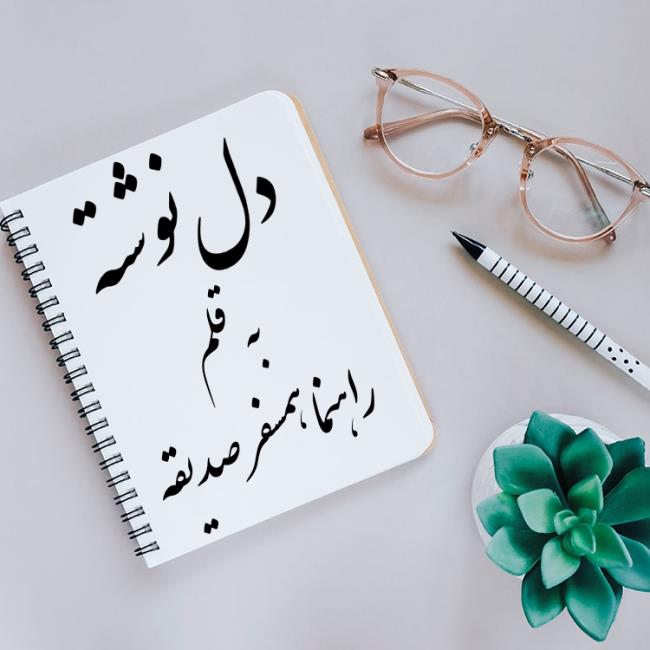 دل نوشته
به قلم
راهنما همسفر صدیقه